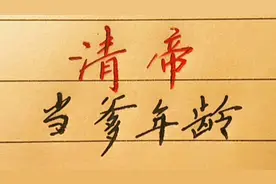 清帝
当爹年龄